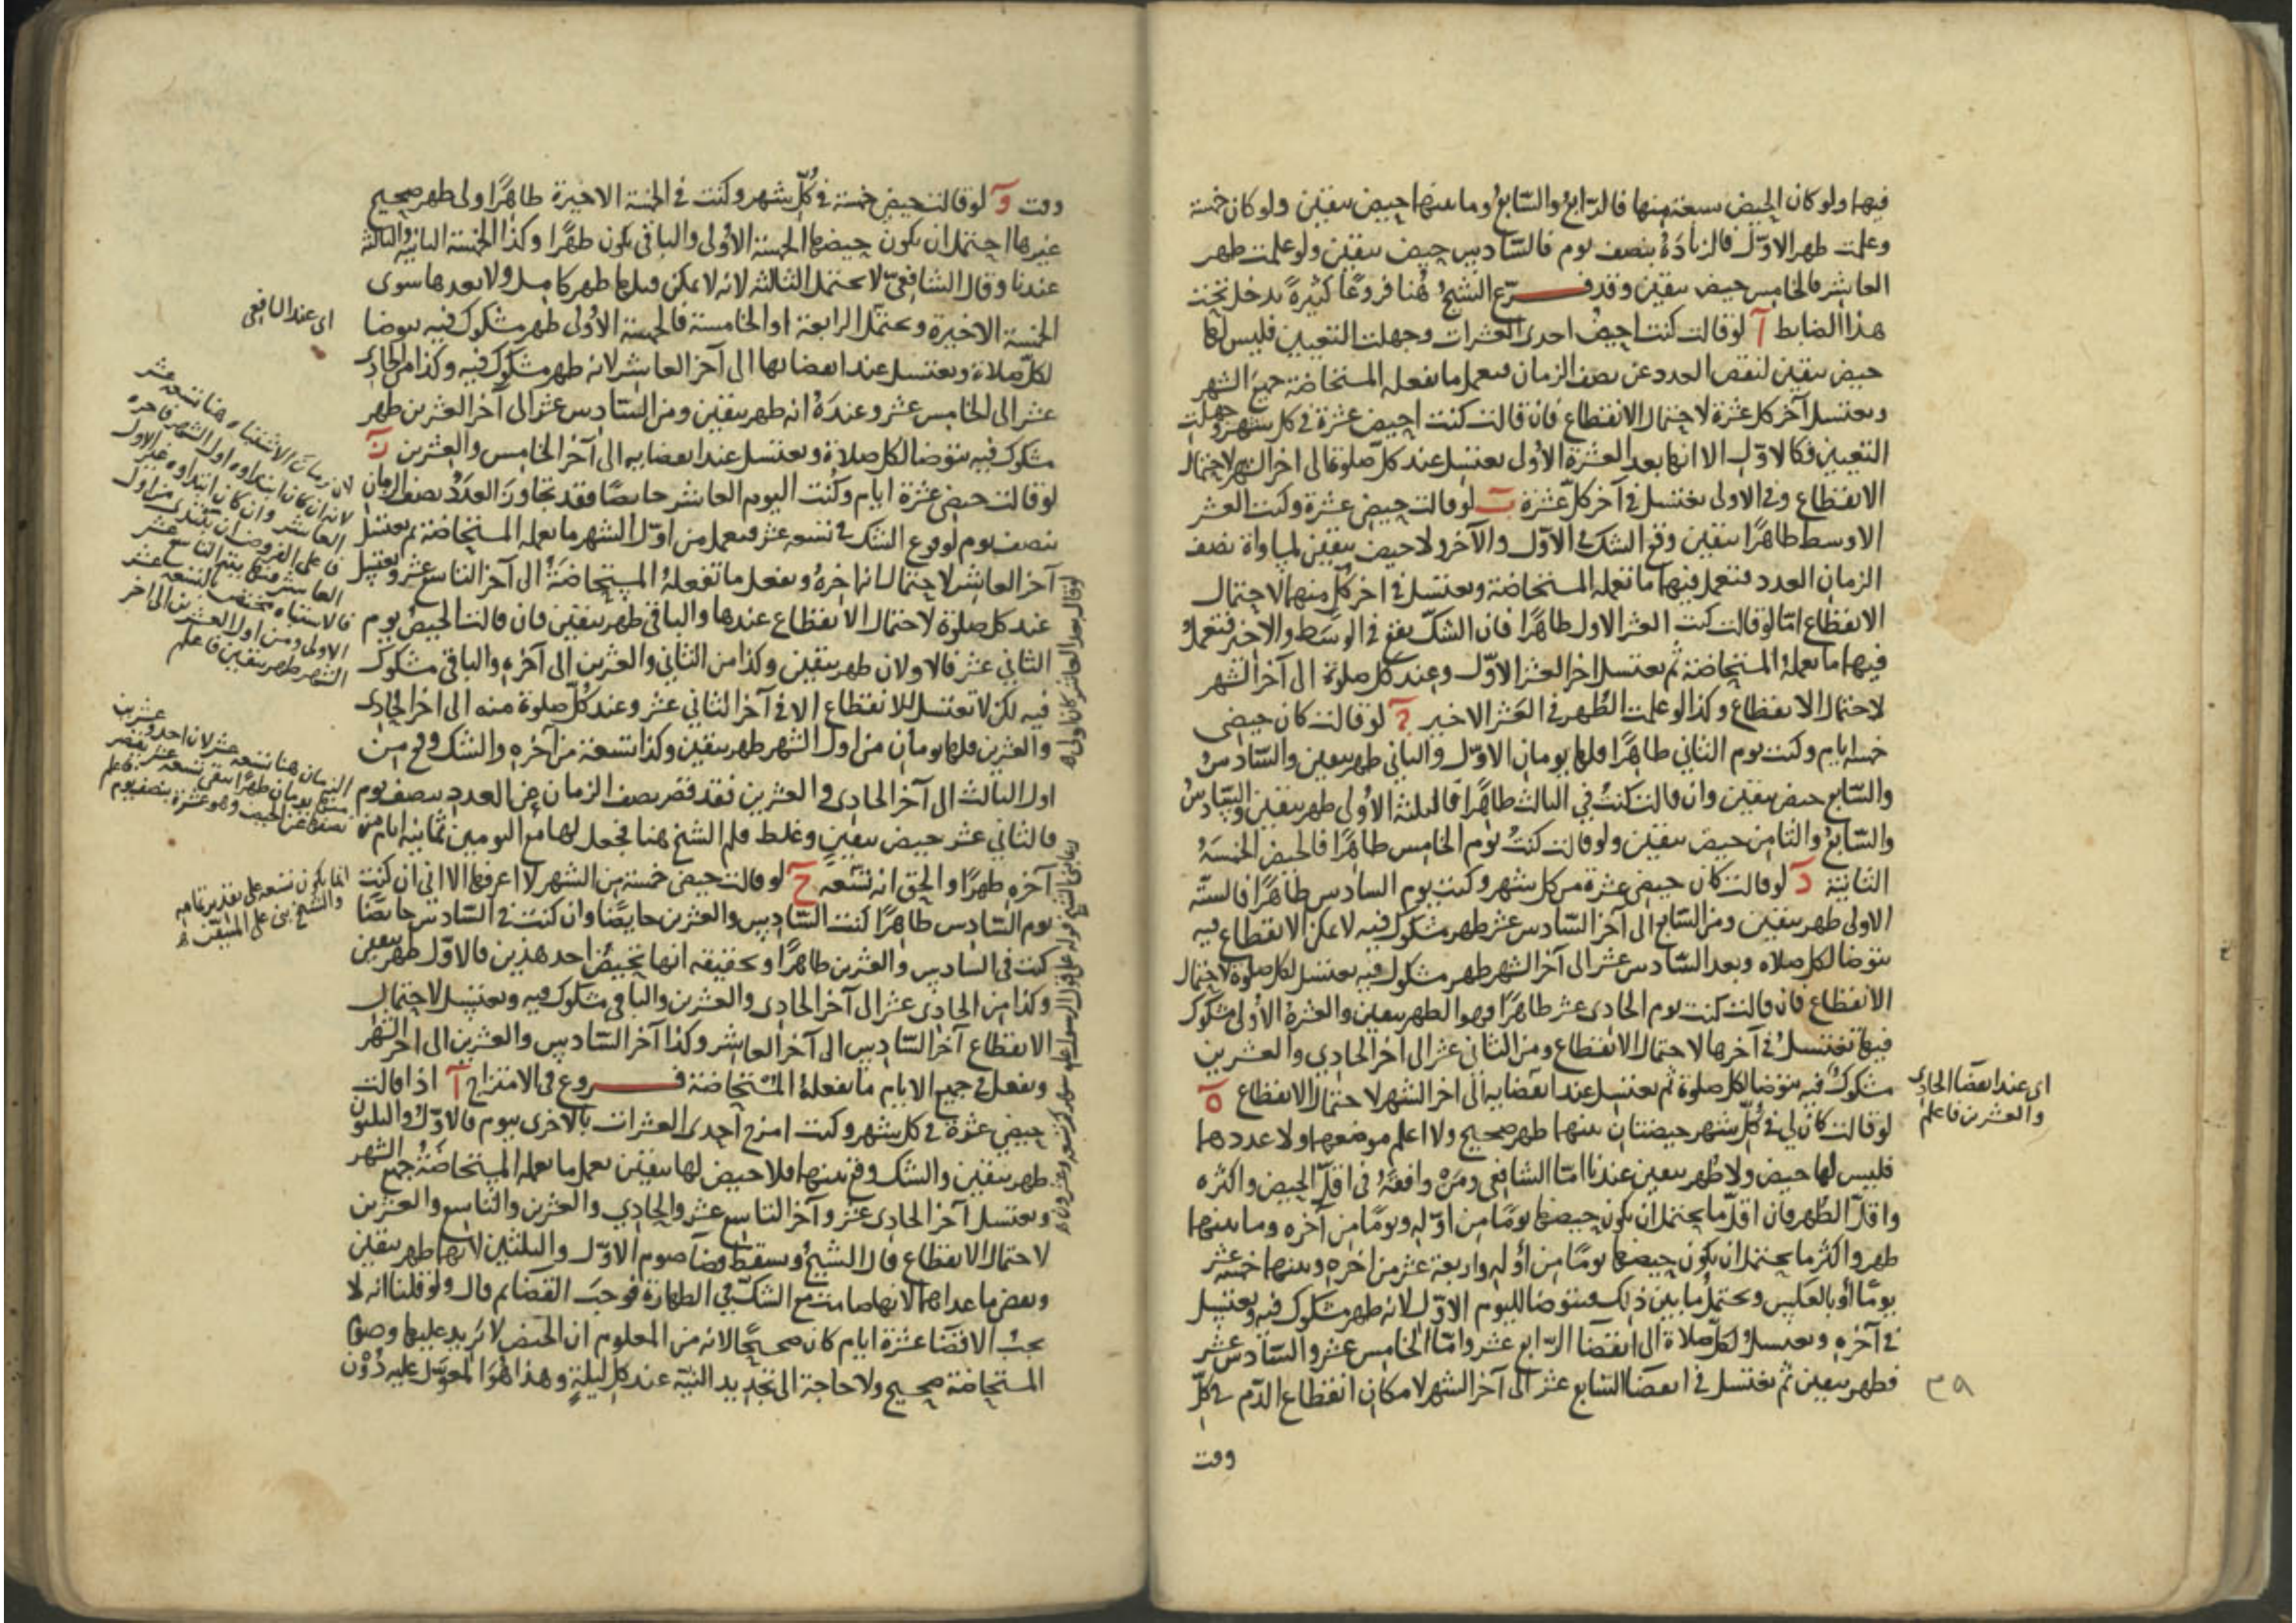 فيها ولو كان الحيض سبعة منها فالرابع والسابع وما بينهما حيض بيقين ولو كان خمسة
وعلمت طهر الاول فالزيادة بنصف يوم فالسادس حيض بيقين ولو علمت طهر
العاشر فالخامس حيض بيقين وقد فرع الشيخ هنا فروعا كثيرة يدخل تحت
هذا الضابط آ لو قالت كنت احيض احدى العشرات وجهلت التعيين فليس لها
حيض بيقين لنقص العدد عن نصف الزمان فتعمل ما تفعله المستحاضة جميع الشهر
وتغتسل آخر كل عشرة لاحتمال الانقطاع فان قالت كنت احيض عشرة في كل شهر وجهلت
التعيين فكالاول الا انها بعد العشرة الاول تغتسل عند كل صلوة الى اخر الشهر لاحتمال
الانقطاع وفي الاولى تغتسل في آخر كل عشرة ب لو قالت حيضي عشرة وكنت العشر
الاوسط طاهرا بيقين وقع الشك في الاول والآخر ولا حيض بيقين لمساواة نصف
الزمان العدد فتعمل فيهما ما تعمله المستحاضة وتغتسل في اخر كل منهما لاحتمال
الانقطاع امّا لو قالت كنت العشر الاول طاهرا فان الشك يقع في الوسط والاخير فتعمل
فيهما ما تعمله المستحاضة ثم تغتسل اخر العشر الاول وعند كل صلوة الى آخر الشهر
لاحتمال الانقطاع وكذا لو علمت الطهر في العشر الاخير ج لو قالت كان حيضي
خمسة ايام وكنت يوم الثاني طاهرا فلها يومان الاول والثاني طهر بيقين والسادس
والسابع حيض بيقين وان قالت كنت في الثالث طاهرا فالثلثة الاولى طهر بيقين والسادس
والسابع والثامن حيض بيقين ولو قالت كنت يوم الخامس طاهرا فالحيض الخمسة
الثانية د لو قالت كان حيضي عشرة من كل شهر وكنت يوم السادس طاهرا فالستة
الاولى طهر بيقين ومن السابع الى آخر السادس عشر طهر مشكوك فيه لا يمكن الانقطاع فيه
تتوضا لكل صلاة وبعد السادس عشر الى آخر الشهر طهر مشكوك فيه تغتسل لكل صلوة لاحتمال
الانقطاع فان قالت كنت يوم الحادى عشر طاهرا فهو الطهر بيقين والعشرة الاولى مشكوك
فيها تغتسل في آخرها لاحتمال الانقطاع ومن الثاني عشر الى آخر الحادي والعشرين
مشكوك فيه تتوضا لكل صلوة ثم تغتسل عند انقضايه الى اخر الشهر لاحتمال الانقطاع ه
لو قالت كان لي في كل شهر حيضتان بينهما طهر صحيح ولا اعلم موضعهما ولا عددهما
فليس لها حيض ولا طهر بيقين عندنا امّا الشافعي ومن وافقه في اقل الحيض واكثره
واقل الطهر فان اقل ما يحتمل ان يكون حيضها يوما من اوله ويوما من آخره وما بينهما
طهر واكثر ما يحتمل ان يكون حيضها يوما من أوله واربعة عشر من اخره وبينهما خمسة عشر
يوما أو بالعكس ويحتمل ما بين ذلك فتتوضا لليوم الاول لانه طهر مشكوك فيه وتغتسل
في آخره وتغتسل لكل صلاة الى انقضا الرابع عشر وامّا الخامس عشر والسادس عشر
فطهر بيقين ثم تغتسل في انقضا السابع عشر الى آخر الشهر لامكان انقطاع الدم في كل
وقت
اى عند انقضا الحادى
والعشرين فاعلم
٣٩
وقت و لو قالت حيضي خمسة في كل شهر وكنت في الخمسة الاخيرة طاهرا ولي طهر صحيح
غيرها احتمل ان يكون حيضها الخمسة الاولى والباقي يكون طهرا وكذا الخمسة الثانية والثالثة
عندنا وقال الشافعي لا يحتمل الثالثة لانه لا يمكن قبلها طهر كامل ولا بعدها سوى
الخمسة الاخيرة ويحتمل الرابعة او الخامسة فالخمسة الاولى طهر مشكوك فيه تتوضا
لكل صلاة وتغتسل عند انقضائها الى آخر العاشر لانه طهر مشكوك فيه وكذا من الحادى
عشر الى الخامس عشر وعنده انه طهر بيقين ومن السادس عشر الى آخر العشرين طهر
مشكوك فيه تتوضا لكل صلاة وتغتسل عند انقضايه الى آخر الخامس والعشرين ز
لو قالت حيضي عشرة ايام وكنت اليوم العاشر حايضا فقد تجاوز العدد نصف الزمان
بنصف يوم لوقوع الشك في تسعة عشر فتعمل من اول الشهر ما تعمله المستحاضة ثم تغتسل
آخر العاشر لاحتمال انه اخره وتفعل ما تفعله المستحاضة الى آخر التاسع عشر وتغتسل
عند كل صلوة لاحتمال الانقطاع عندها والباقي طهر بيقين فان قالت الحيض يوم
الثاني عشر فالاولان طهر بيقين وكذا من الثاني والعشرين الى آخره والباقي مشكوك
فيه لكن لا تغتسل للانقطاع الا في آخر الثاني عشر وعند كل صلوة منه الى اخر الحادى
والعشرين فلها يومان من اول الشهر طهر بيقين وكذا تسعة من آخره والشك وقع من
اول الثالث الى آخر الحادى والعشرين فقد قصر نصف الزمان عن العدد بنصف يوم
فالثاني عشر حيض بيقين وغلط قلم الشيخ هنا فجعل لها مع اليومين ثمانية ايام من
آخره طهرا والحق انه تسعة ح لو قالت حيضي خمسة من الشهر لا اعرفها الا اني ان كنت
يوم السادس طاهرا كنت السادس والعشرين حايضا وان كنت في السادس حايضا
كنت في السادس والعشرين طاهرا وتحقيقه انها تحيض احد هذين فالاول طهر بيقين
وكذا من الحادى عشر الى آخر الحادى والعشرين والباقي مشكوك فيه وتغتسل لاحتمال
الانقطاع آخر السادس الى آخر العاشر وكذا آخر السادس والعشرين الى اخر الشهر
وتفعل في جميع الايام ما تفعله المستحاضة فروع في الامتزاج آ اذا قالت
حيضي عشرة في كل شهر وكنت امزج احدى العشرات بالاخرى بيوم فالاول والثلثون
طهر بيقين والشك وقع بينهما فلا حيض لها بيقين تعمل ما تعمله المستحاضة جميع الشهر
وتغتسل آخر الحادى عشر وآخر التاسع عشر والحادي والعشرين والتاسع والعشرين
لاحتمال الانقطاع قال الشيخ ويسقط قضاء صوم الاول والثلثين لانهما طهر بيقين
وتقضى ما عداهما لانها صامت مع الشك في الطهارة فوجب القضا ثم قال ولو قلنا انه لا
يجب الا قضا عشرة ايام كان صحيحا لانه من المعلوم ان الحيض لا يزيد عليها وصوم
المستحاضة صحيح ولا حاجة الى تجديد النية عند كل ليلة وهذا هو المعول عليه دون
اى عند الشافعي
لان زمان الاشتباه هنا تسعة عشر
لانه ان كان ابتداوه اول الشهر فاخره
العاشر وان كان ابتداوه
العاشر فمنتهى التاسع عشر
فالاشتباه مختص بالتسعة عشر
الاولى ومن اول العشرين الى اخر
الشهر طهر بيقين فاعلم
الزمان هنا تسعة عشر لان احد وعشرين
منها يومان طهرا تبقى تسعة عشر يقصر
نصفها عن الحيض وهو عشرة بنصف يوم فاعلم
انما يكون تسعة على تقدير تمامه
والشيخ بنى على المتيقن